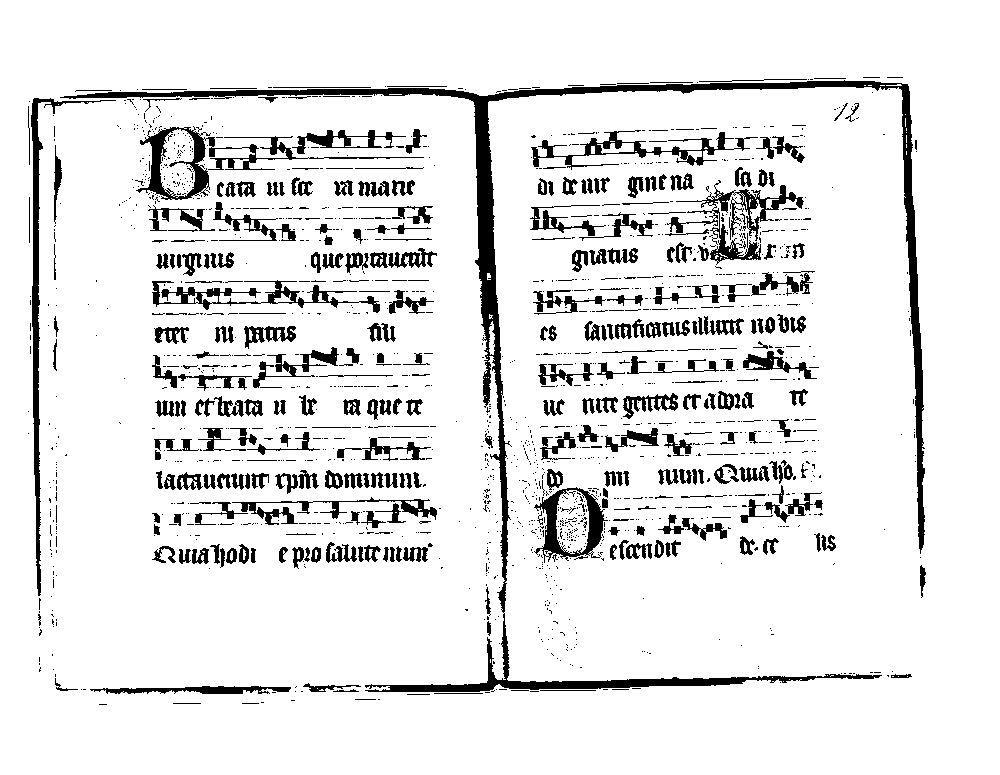 Beata vi sce ra marie
virginis que portaverūt
eter ni patris fili
um et beata u be ra que te
lactaverunt xpm̄ dominum.
Quia hodi e pro salute mun
12
di de vir gine na sci di
gnatus est.
es sanctificatus illuxit nobis
ve nite gentes et adora te
do mi num. Quia ho.
Descendit de ce lis